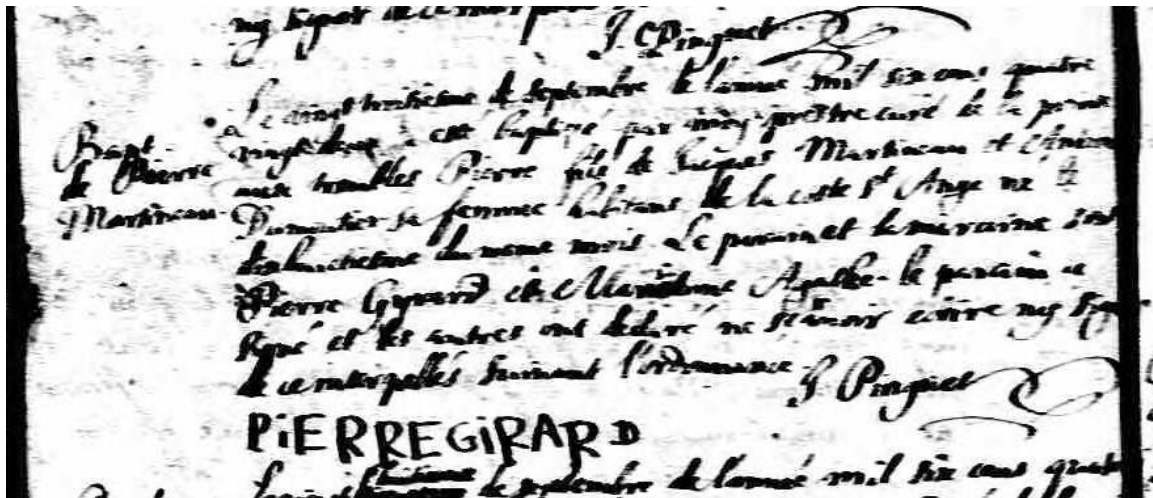 ny signer de ce
J. Pinguet
Bapt.
de Pierre
Martineau
Le vingt huitiesme de septembre de l'année mil six cens quatre
vingt deux a esté baptizé par moy prestre curé de la pointe
aux trembles Pierre fils de Jaques Martineau et
Dumontier sa femme habitans de la coste St Ange né le
du mesme mois. Le parain et la maraine sont
Pierre Gyrard et Agathe. le parain a
signé et les autres ont declaré ne sçavoir ecrire ny signer
de ce interpellés suivant l'ordonnance.
J. Pinguet
PiERRE GiRARD
de septembre de l'année mil six cens quatre